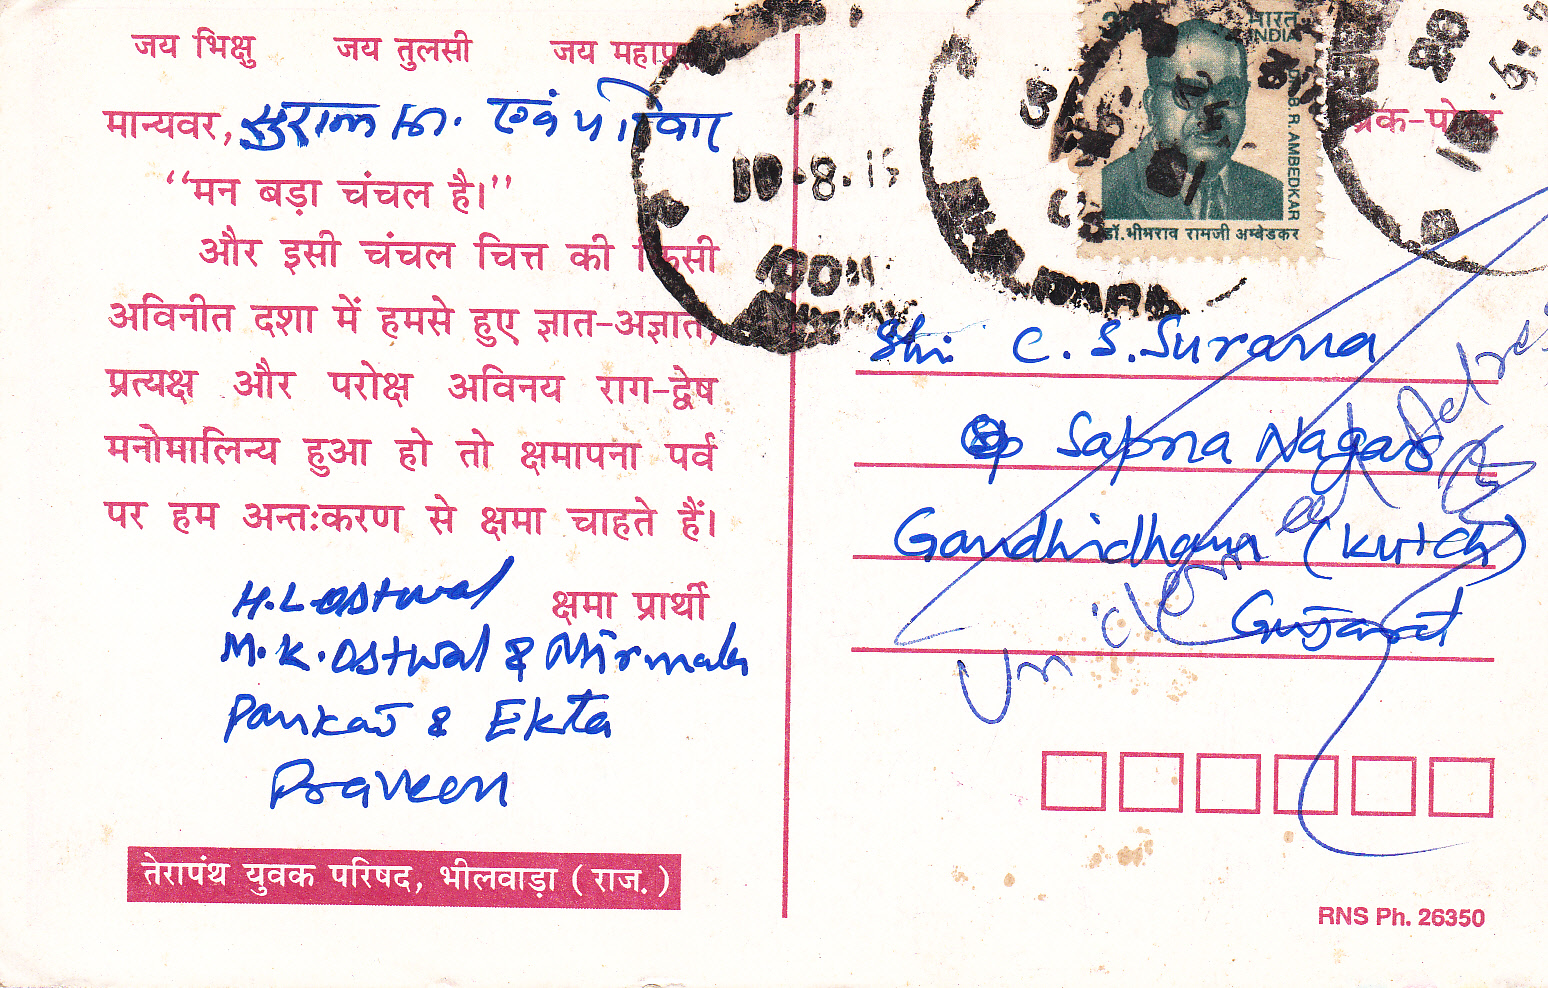 जय भिक्षु जय तुलसी जय महाप्र
मान्यवर, सुराणा सा. एवं परिवार
“मन बड़ा चंचल है।”
और इसी चंचल चित्त की किसी
अविनीत दशा में हमसे हुए ज्ञात-अज्ञात,
प्रत्यक्ष और परोक्ष अविनय राग-द्वेष
मनोमालिन्य हुआ हो तो क्षमापना पर्व
पर हम अन्तःकरण से क्षमा चाहते हैं।
क्षमा प्रार्थी
H.L. Ostwal
M.K. Ostwal & Nirmala
Pankaj & Ekta
Praveen
तेरापंथ युवक परिषद, भीलवाड़ा ( राज. )
भारत
INDIA
DR. B. R. AMBEDKAR
डॉ. भीमराव रामजी अम्बेडकर
10.8.15
Shri C. S. Surana
Sapna Nagar
Gandhidham (Kutch)
Gujarat
RNS Ph. 26350